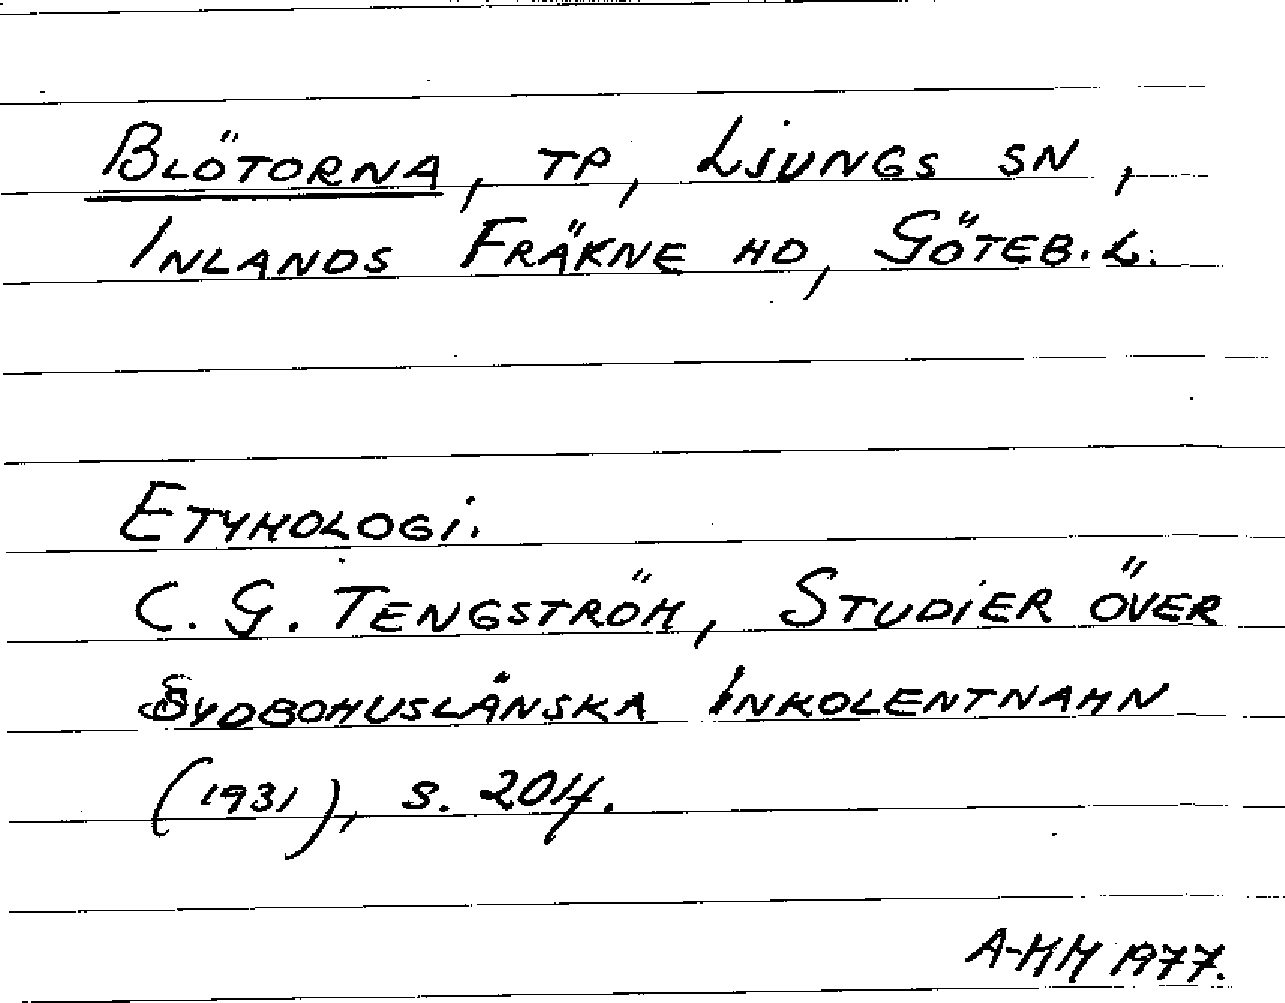 BLÖTORNA, TP, LJUNGS SN,
INLANDS FRÄKNE HD, GÖTEB.L.
ETYMOLOGI.
C. G. TENGSTRÖM, STUDIER ÖVER
SYDBOHUSLÄNSKA INKOLENTNAMN
(1931), S. 204.
A-MM 1977.